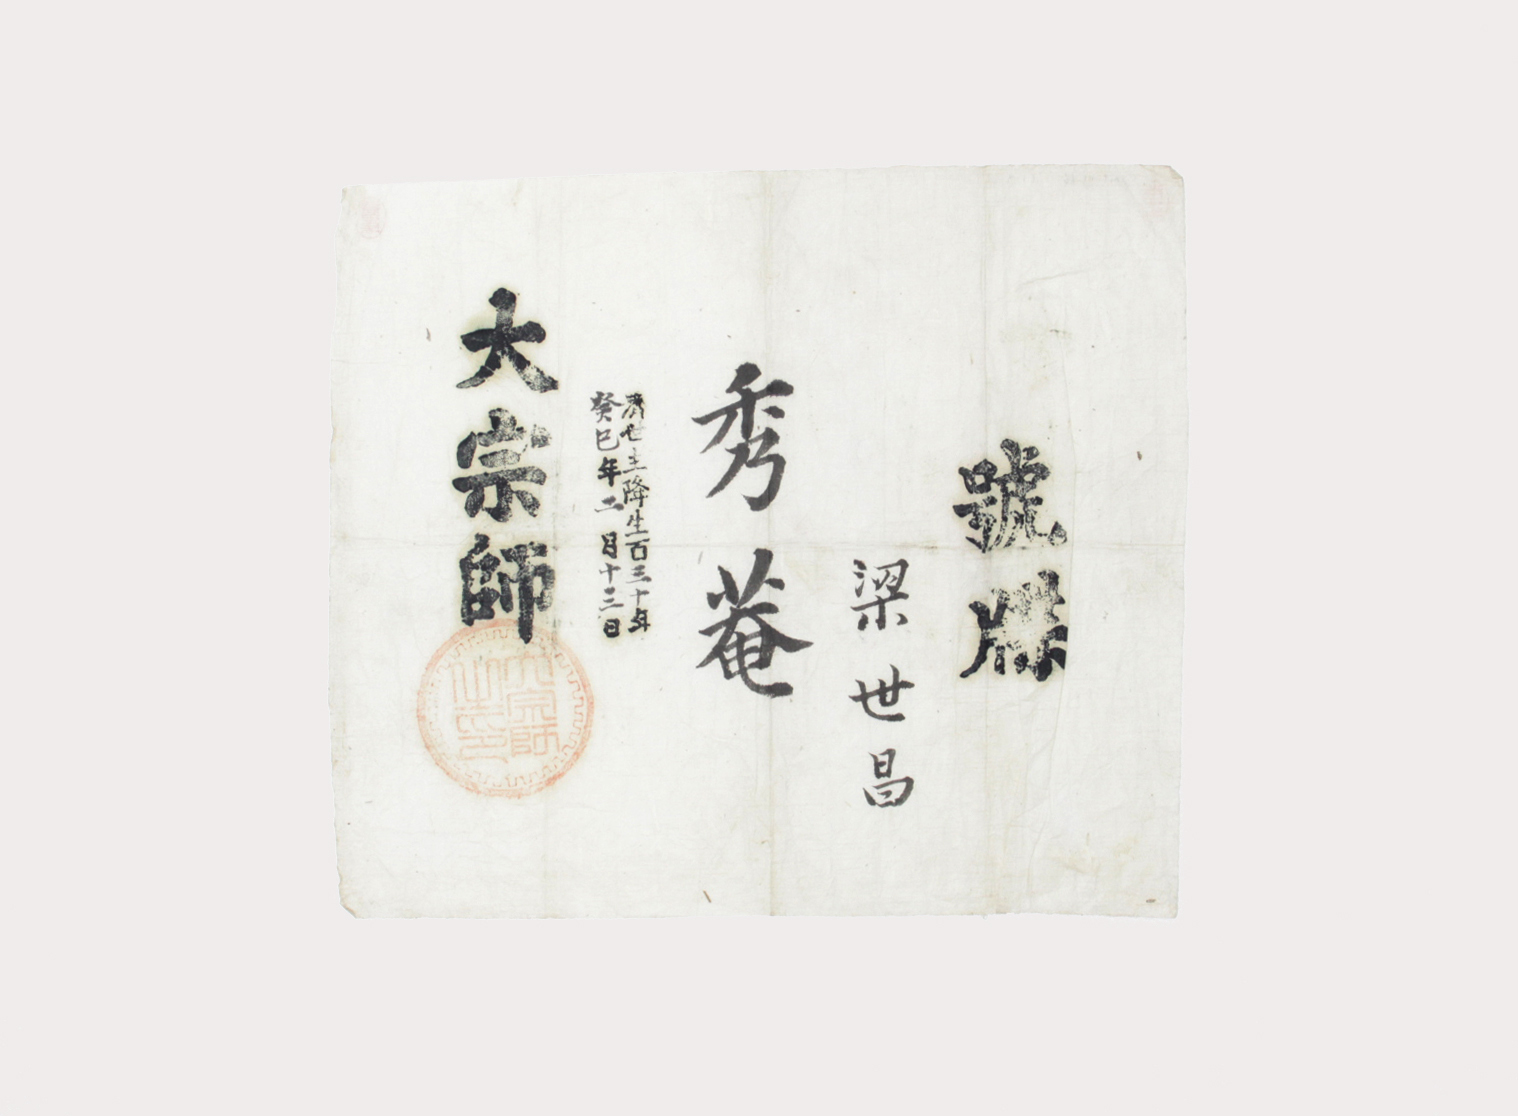 號牒
梁世昌
秀菴
濟世主降生百三十年
癸巳年二月十三日
大宗師
大宗師
之印